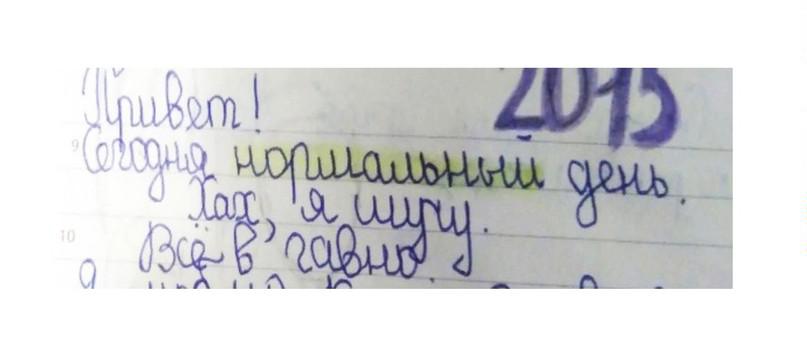 Привет!
2015
9
Сегодня нормальный день.
Хах, я шучу.
10
Всё в гавно.